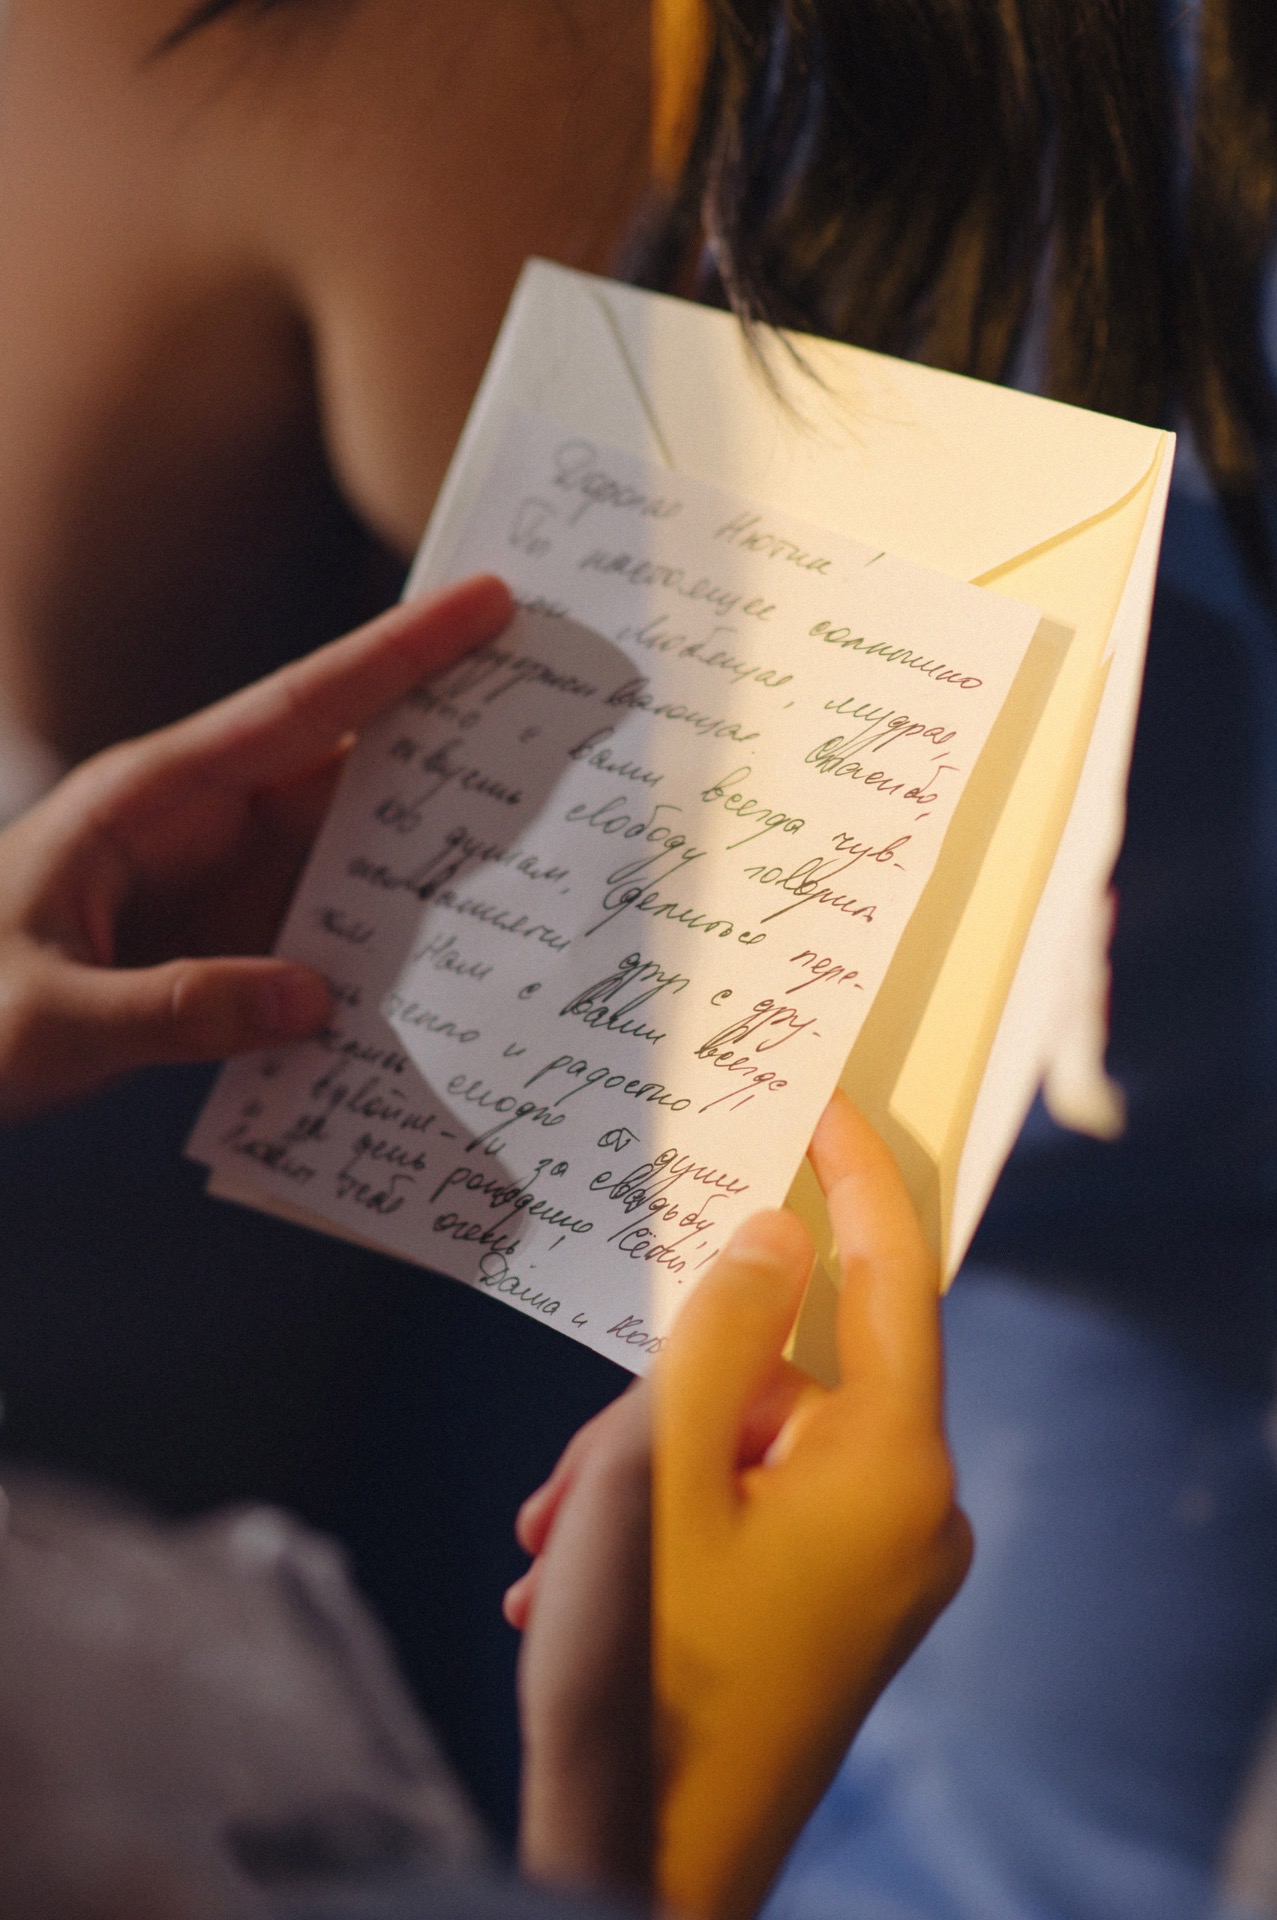 Дорогая Нютик!
Ты настоящее солнышко
Любящая, мудрая,
вающая. Спасибо,
с вами всегда чув-
ствуешь свободу говорить
что думаем, делиться пере-
друг с дру-
гом. Нам с вами всегда
тепло и радостно!
сегодня от души
и вдвойне - и за свадьбу,
и за день рождения, !
Любим тебя очень!
Даша и